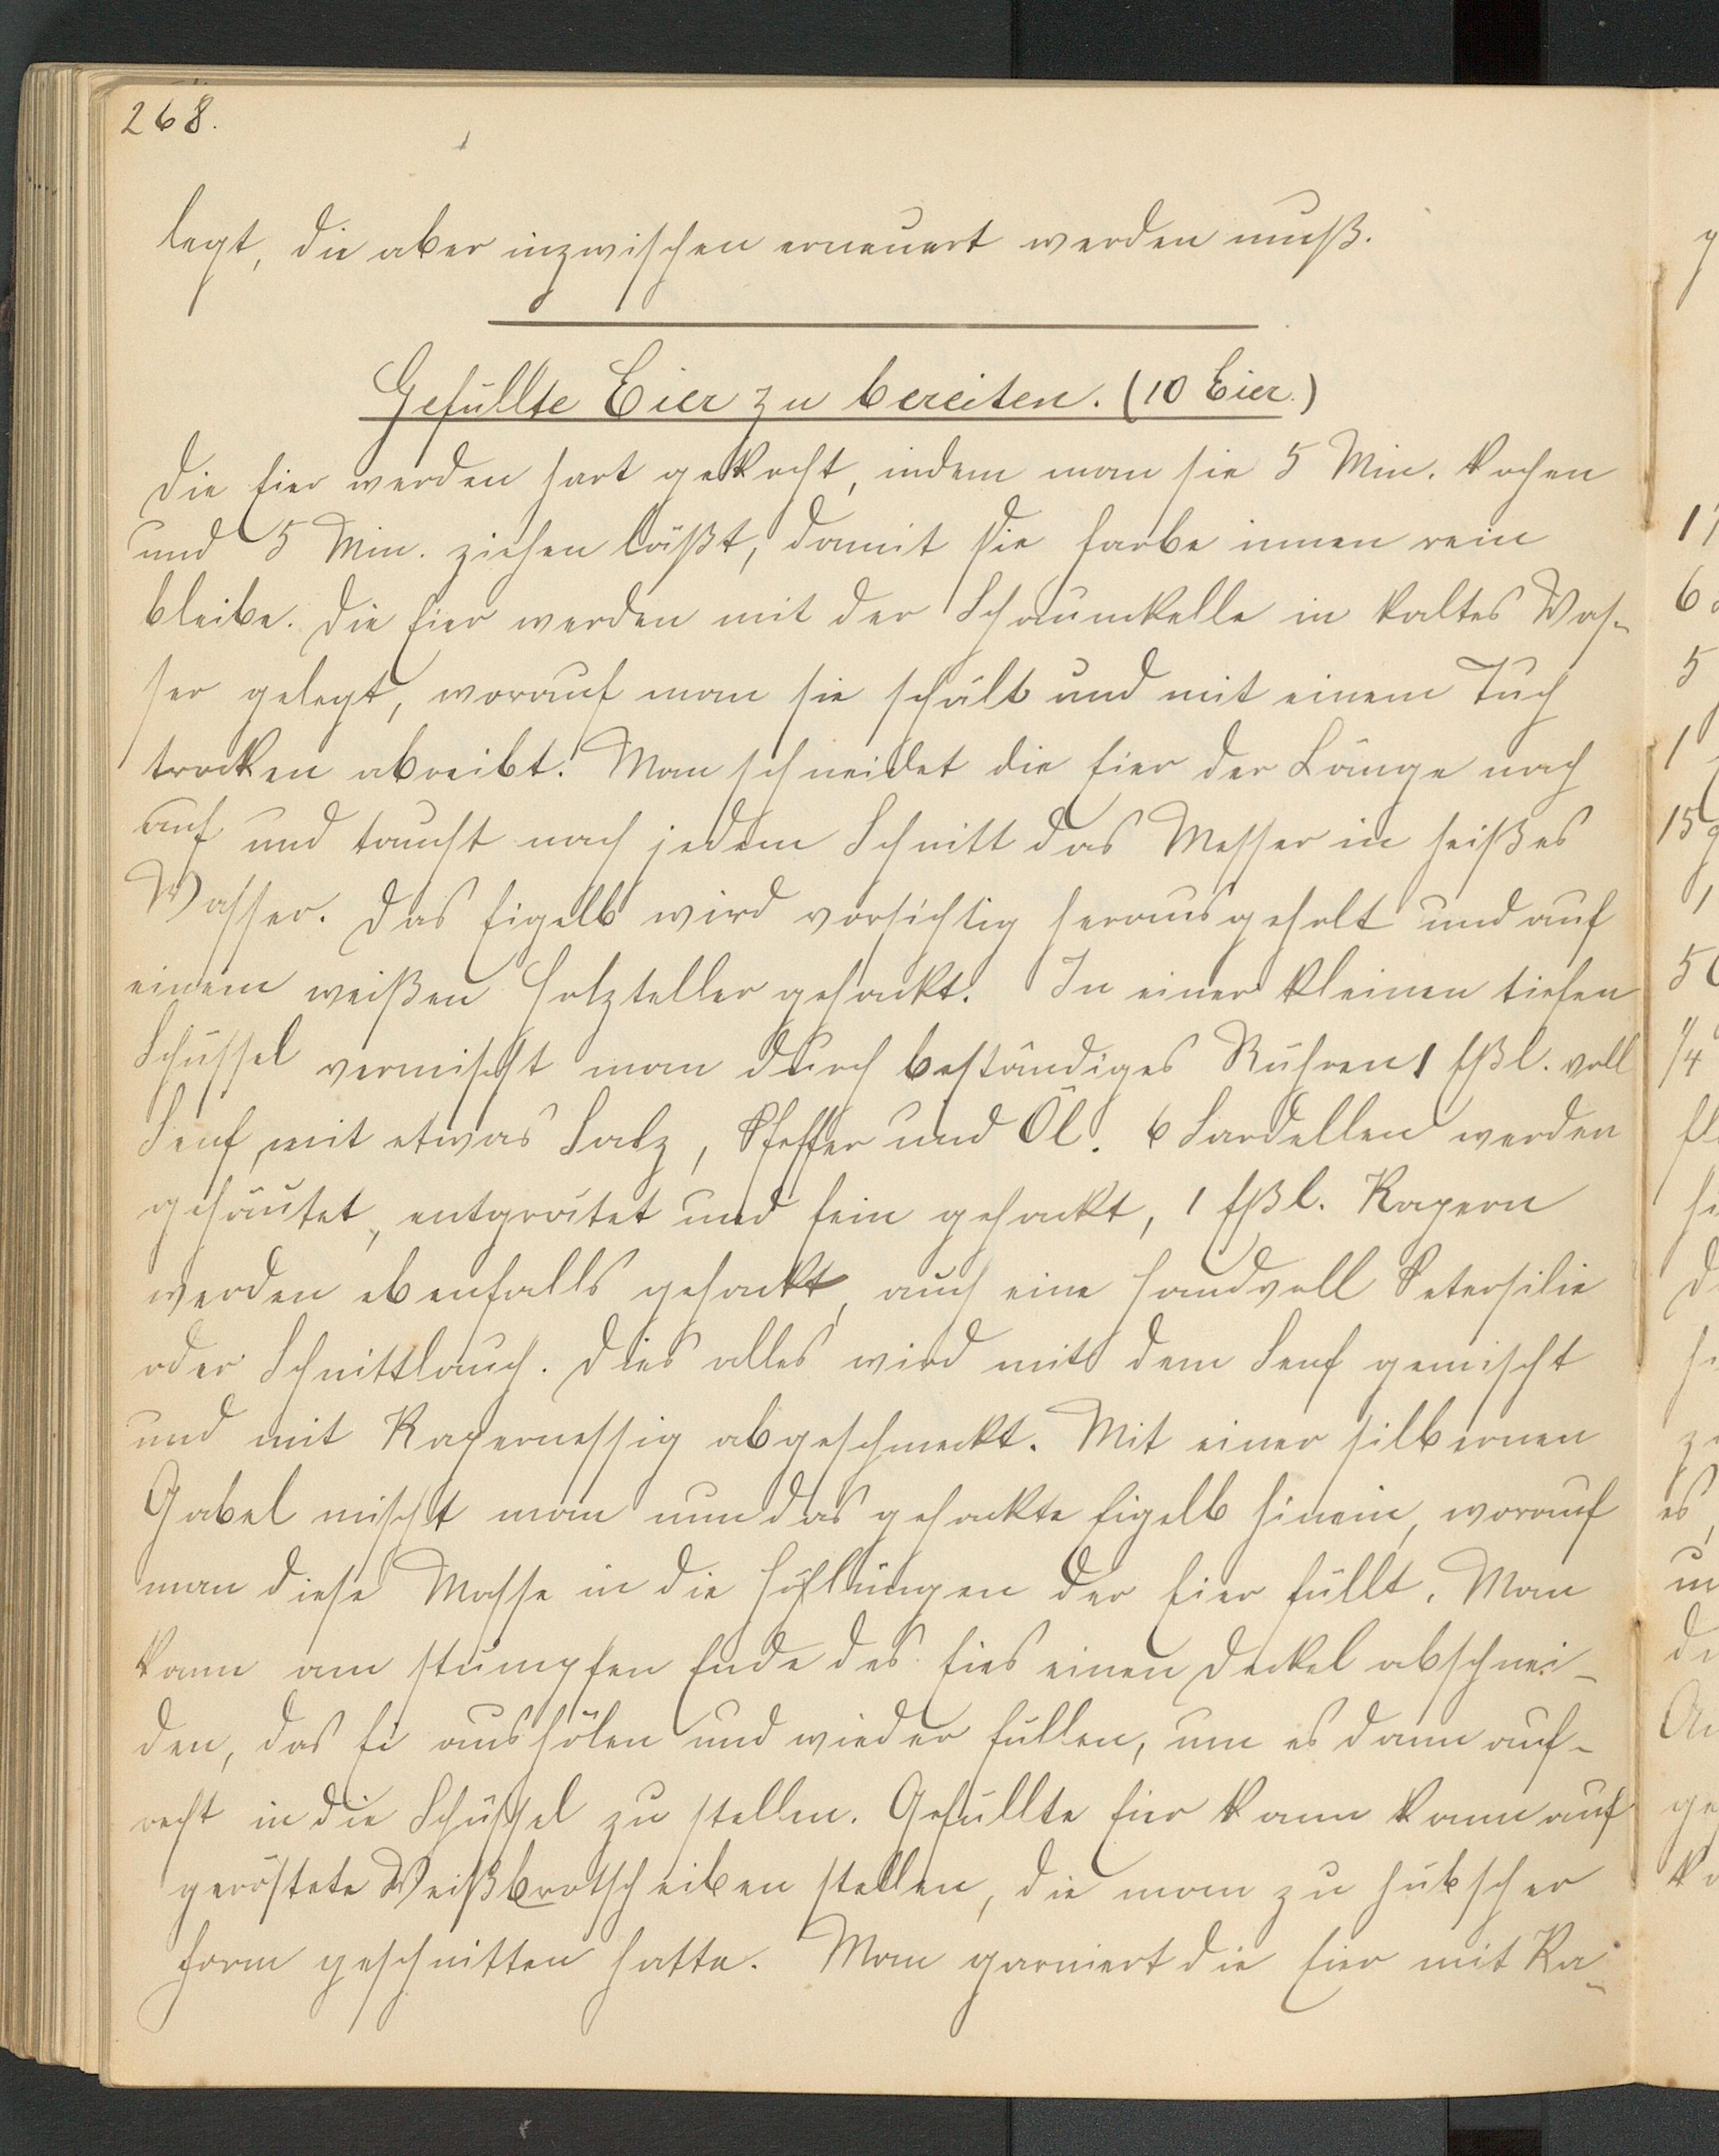 268.
legt, die aber inzwischen erneuert werden muß.
Gefüllte Eier zu bereiten. (10 Eier.)
Die Eier werden hart gekocht, indem man sie 5 Min. kochen
und 5 Min. ziehen läßt, damit die Farbe innen rein
bleibe. Die Eier werden mit der Schaumkelle in kaltes Was-
ser gelegt, worauf man sie schält und mit einem Tuch
trocken abreibt. Man schneidet die Eier der Länge nach
auf und taucht nach jedem Schnitt das Messer in heißes
Wasser. Das Eigelb wird vorsichtig herausgeholt und auf
einem weißen Holzteller gehackt. In einer kleinen tiefen
Schüssel vermischt man durch beständiges Rühren 1 Eßl. voll
Senf mit etwas Salz, Pfeffer und Öl. 6 Sardellen werden
gehäutet, entgrätet und fein gehackt, 1 Eßl. Kapern
werden ebenfalls gehackt, auch eine Handvoll Petersilie
oder Schnittlauch. Dies alles wird mit dem Senf gemischt
und mit Kapernessig abgeschmeckt. Mit einer silbernen
Gabel mischt man nun das gehackte Eigelb hinein, worauf
man diese Masse in die Höhlungen der Eier füllt. Man
kann am stumpfen Ende des Eies einen Deckel abschnei-
den, das Ei aushölen und wieder füllen, um es dann auf-
recht in die Schüssel zu stellen. Gefüllte Eier kann kann auf
geröstete Weißbrotscheiben stellen, die man zu hübscher
Form geschnitten hatte. Man garniert die Eier mit Ka-